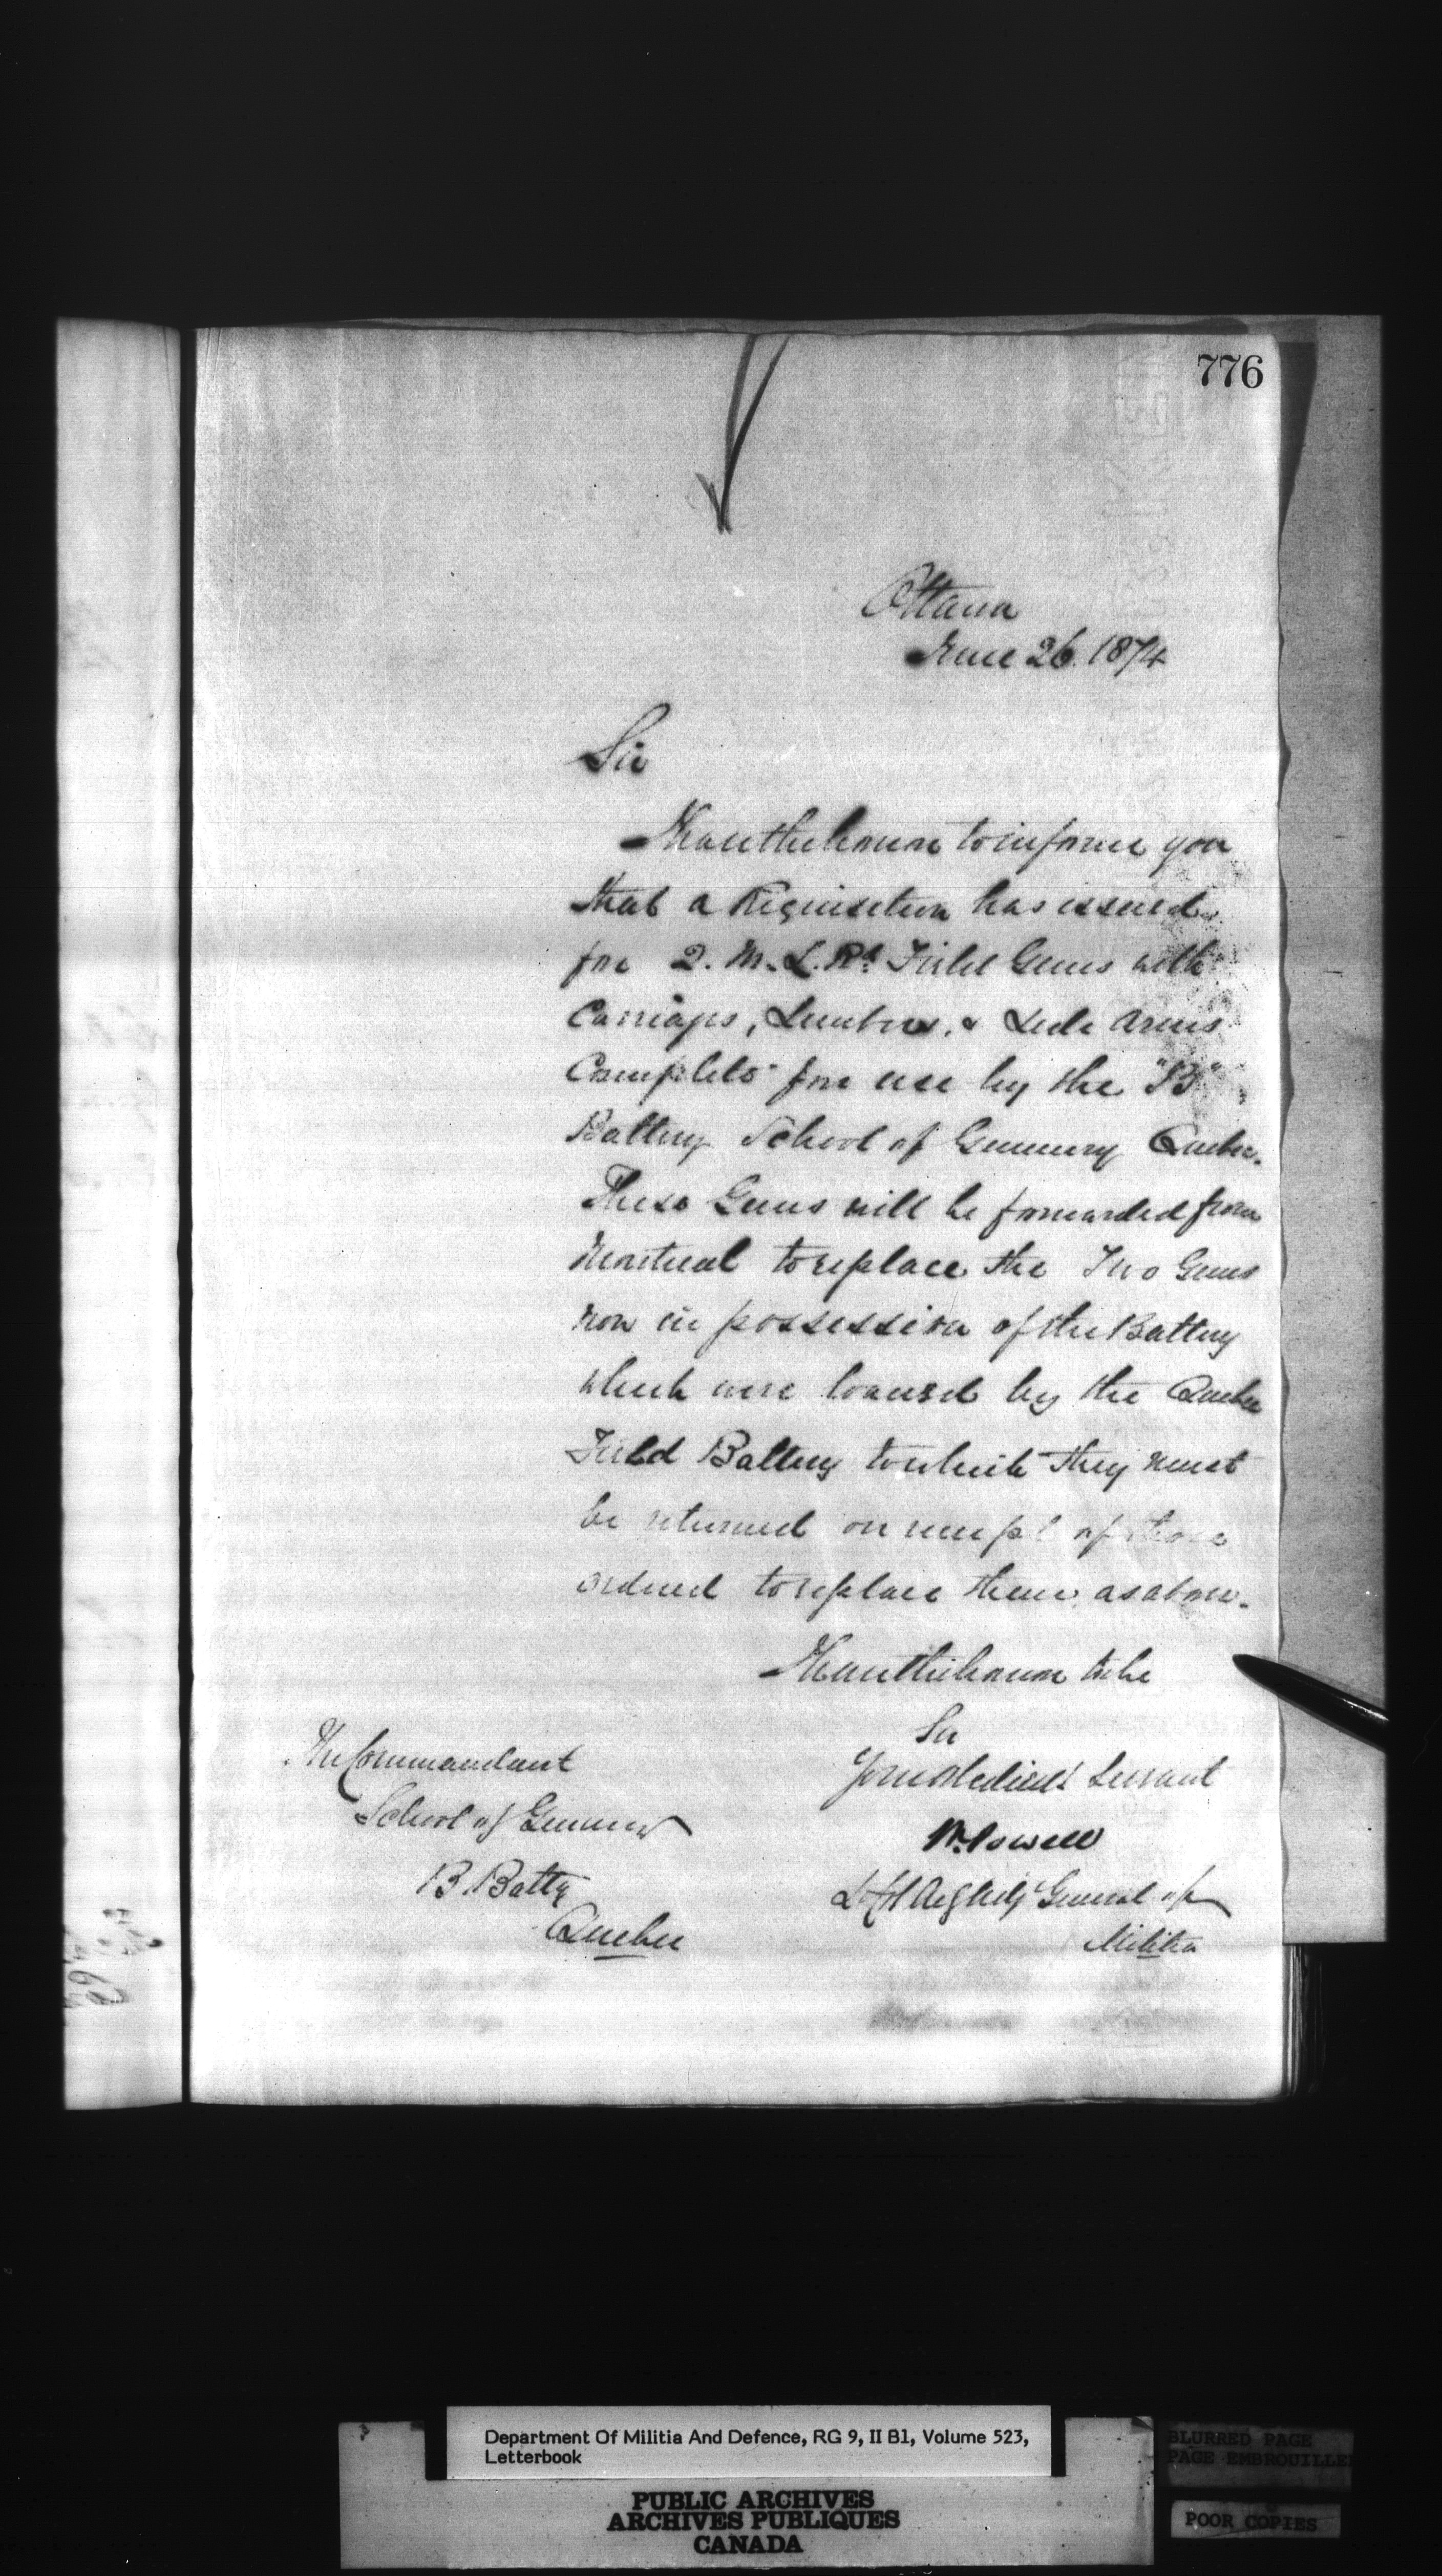 776
Ottawa
June 26. 1874
Sir
I have the honour to inform you
that a Requisition has issued
for 2. M. L. Rd Field Guns with
Carriages, Limbers, & Side Arms
Complete for use by the "B"
Battery School of Gunnery Quebec.
These Guns will be forwarded from
Montreal to replace the Two Guns
now in possession of the Battery
which were loaned by the Quebec
Field Battery to which they must
be returned on receipt of those
ordered to replace them as above.
I have the honour to be
Sir
Your obedient Servant
W. Powell
Lt Col Actg Adjt General of
Militia
The Commandant
School of Gunnery
B. Batty
Quebec
Department Of Militia And Defence, RG 9, II B1, Volume 523,
Letterbook
PUBLIC ARCHIVES
ARCHIVES PUBLIQUES
CANADA
BLURRED PAGE
PAGE EMBROUILLE
POOR COPIES